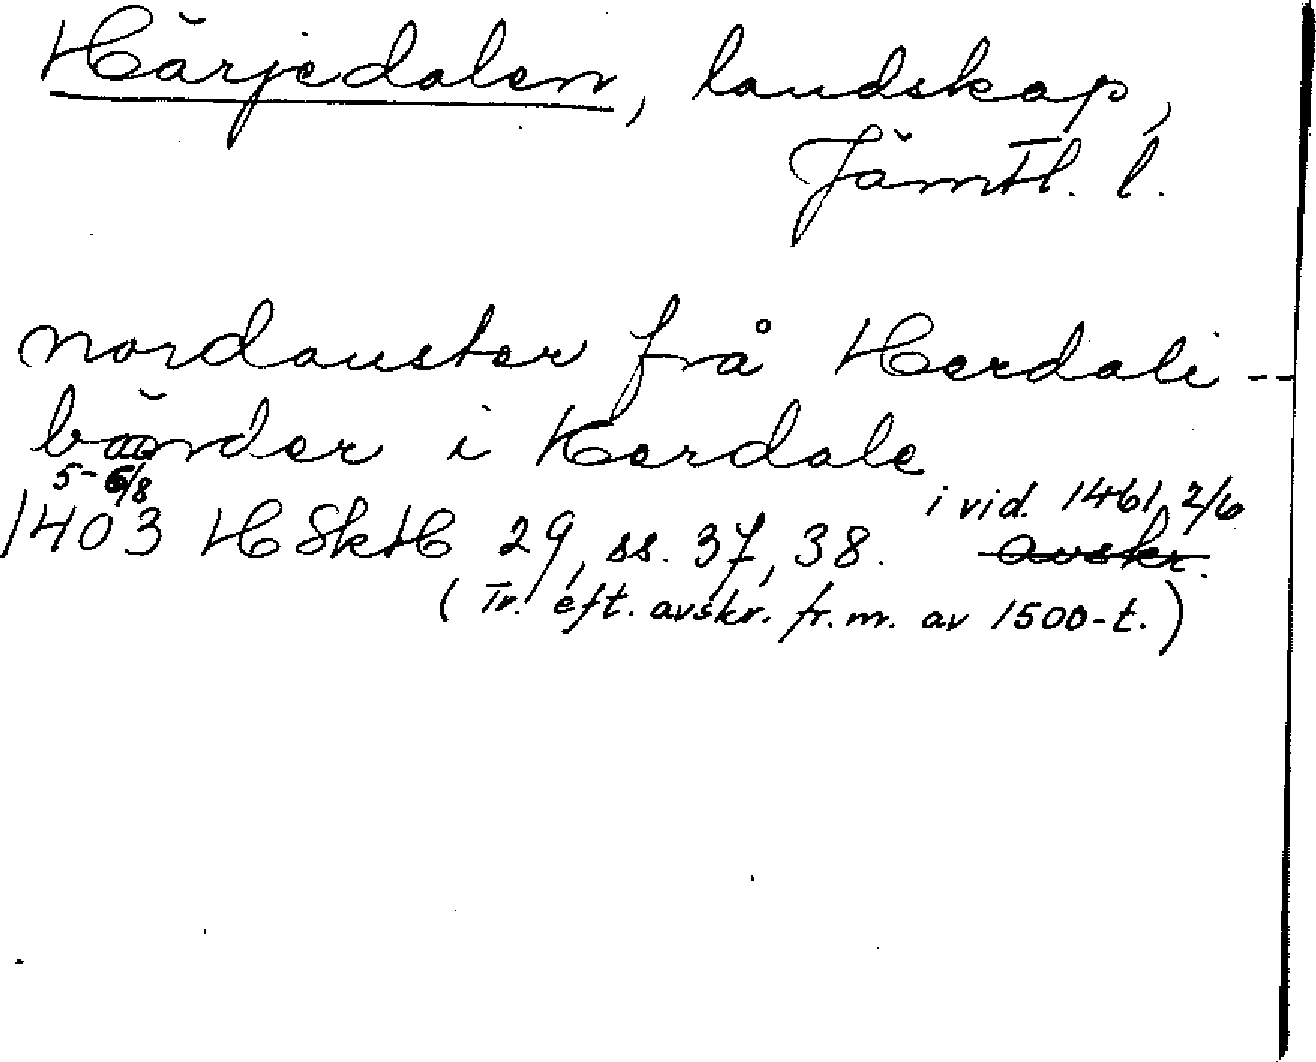 Härjedalen, landskap,
Jämtl. l.
nordauster frå Herdali --
bönder i Herdale
5-6/8
1403 HSkH 29, ss. 37, 38. i vid. 1461 2/6
avskr.
(Tr. eft. avskr. fr. m. av 1500-t.)